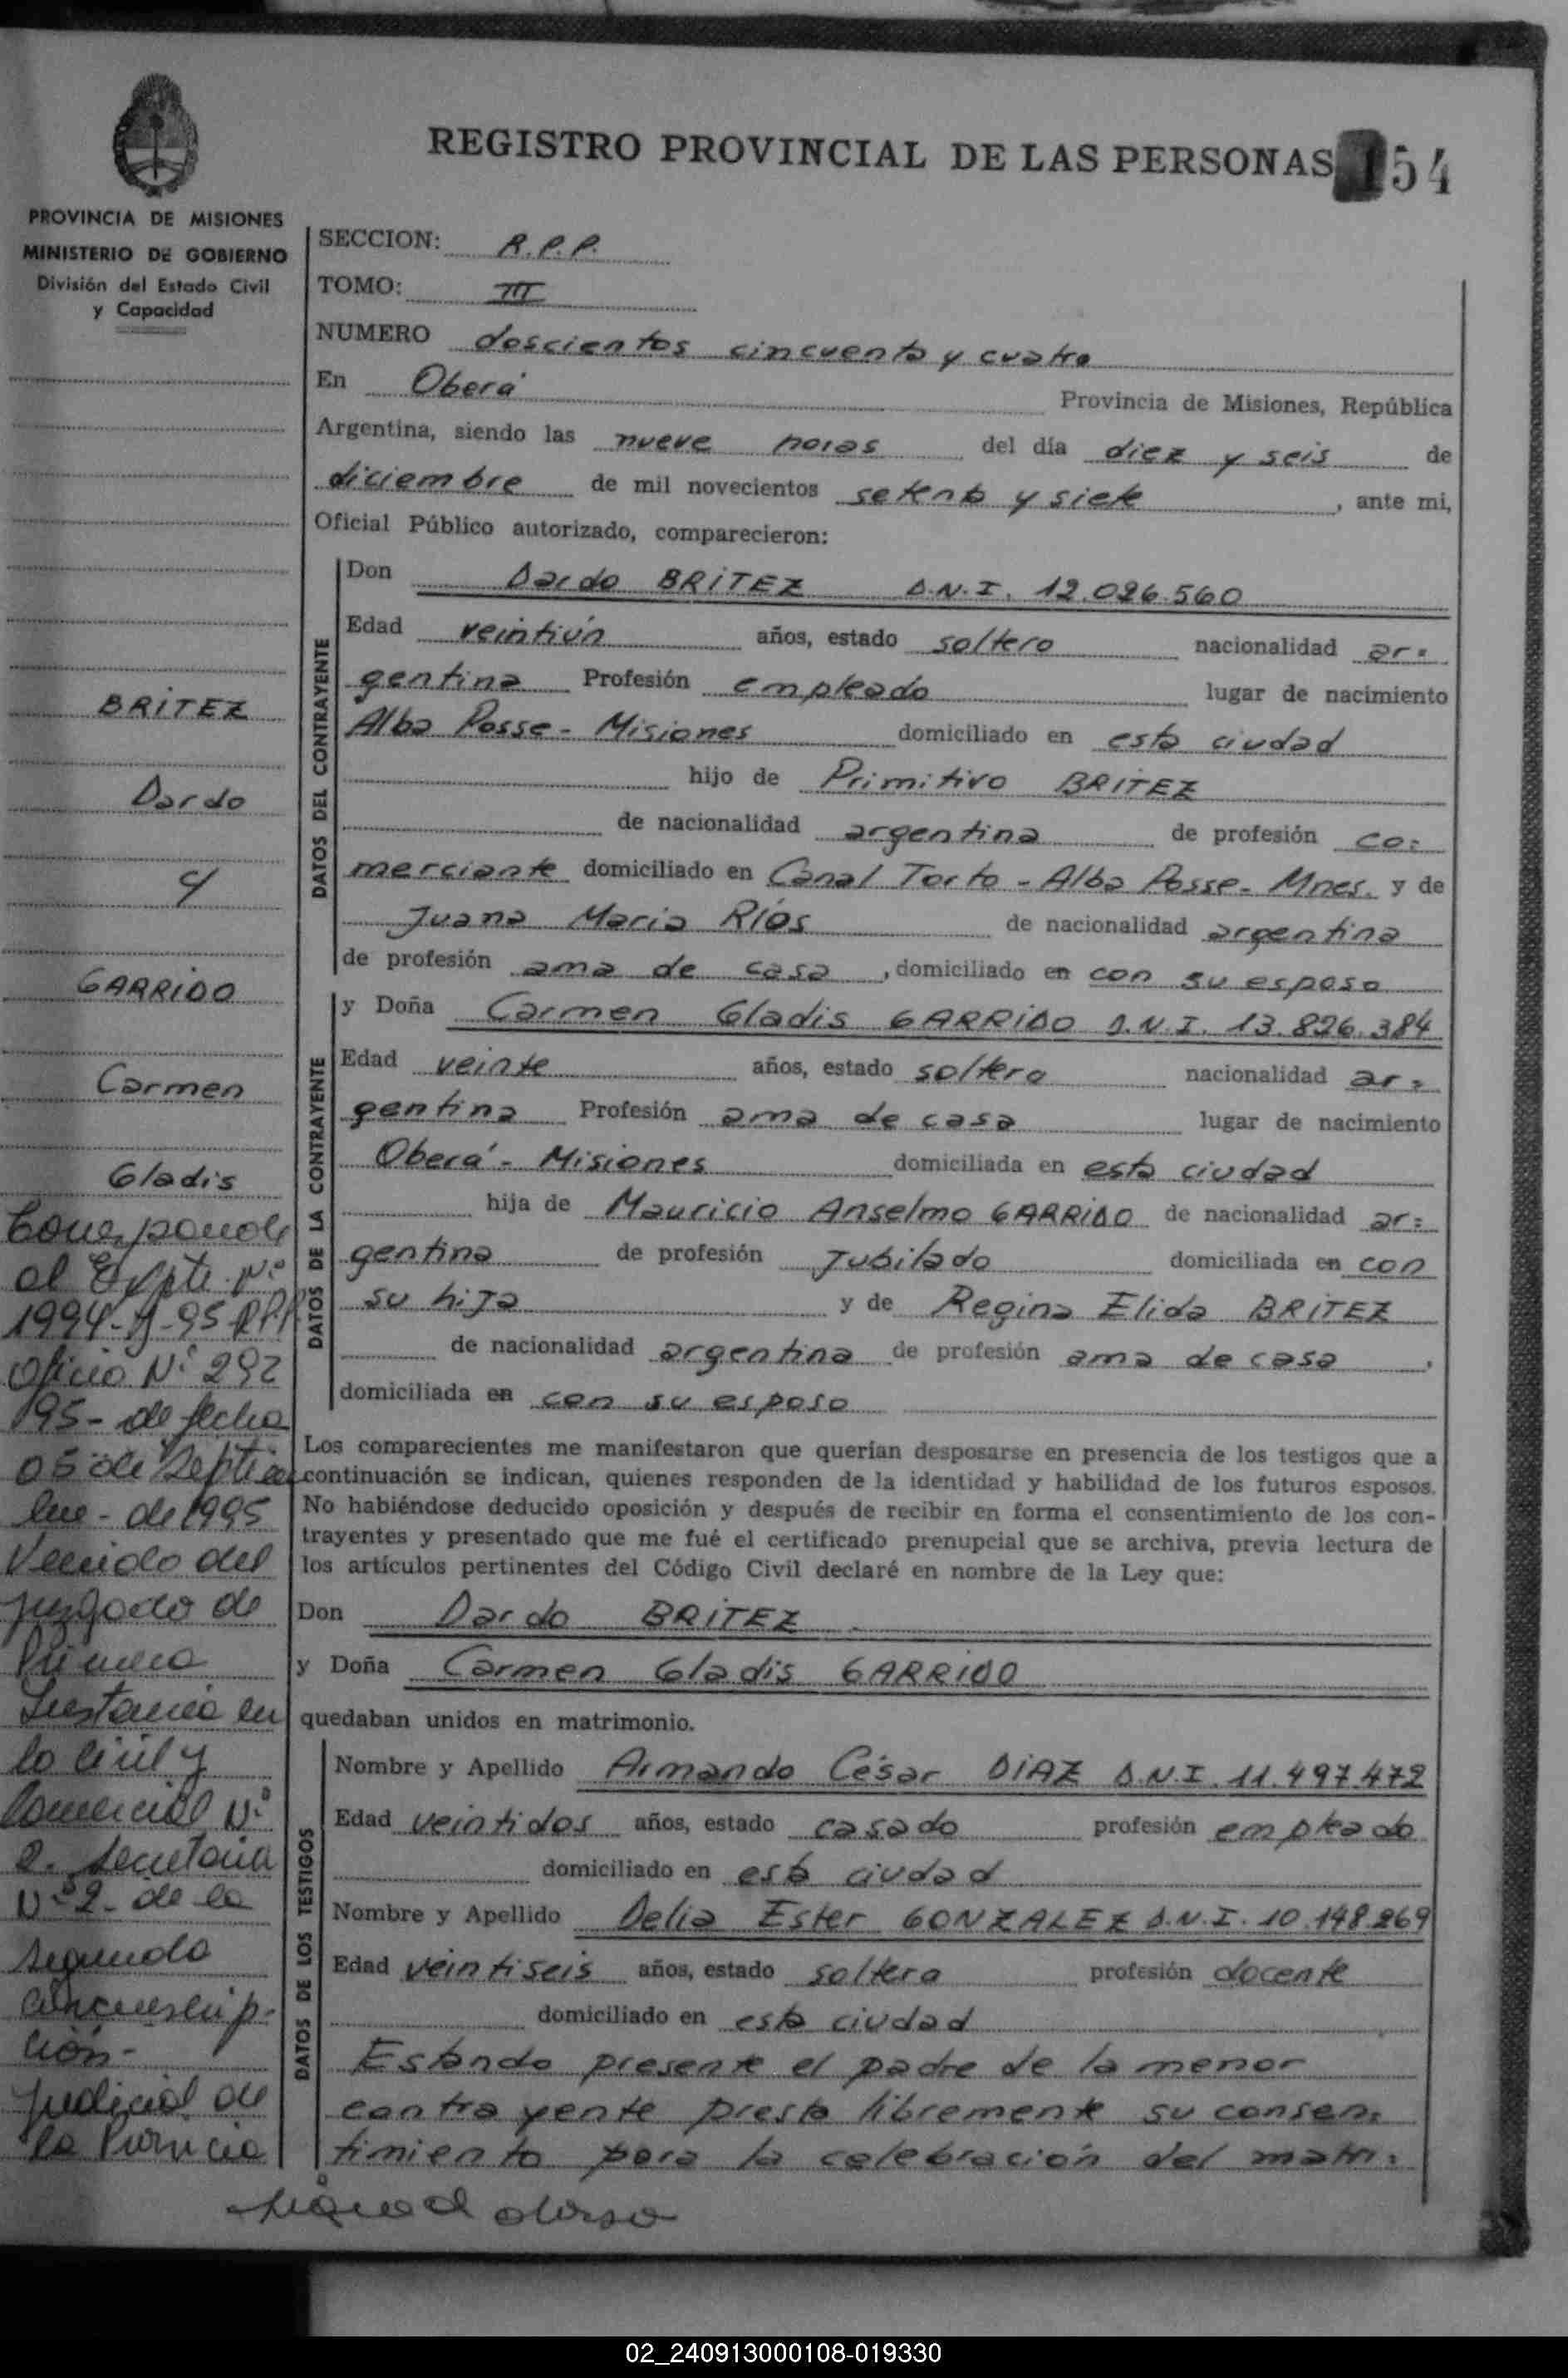 REGISTRO PROVINCIAL DE LAS PERSONAS 154
PROVINCIA DE MISIONES
MINISTERIO DE GOBIERNO
División del Estado Civil
y Capacidad
BRITEZ
Dardo
y
GARRIDO
Carmen
Gladis
Corresponde
al Expte. Nº
1994- -95 RPP
Oficio Nº 292
195- de fecha
05 de Septiem
bre - de 1995
Venido del
Juzgado de
Primera
Instancia en
lo Civil y
Comercial Nº
2. Secretaria
Nº 2- de la
Segunda
Circunscrip-
ción-
Judicial de
la Provincia
SECCION: R.P.P.
TOMO: III
NUMERO doscientos cincuenta y cuatro
En Oberá Provincia de Misiones, República
Argentina, siendo las nueve horas del día diez y seis de
diciembre de mil novecientos setenta y siete, ante mi,
Oficial Público autorizado, comparecieron:
DATOS DEL CONTRAYENTE
Don Dardo BRITEZ D.N.I. 12.026.560
Edad veintiún años, estado soltero nacionalidad ar=
gentina Profesión empleado lugar de nacimiento
Alba Posse - Misiones domiciliado en esta ciudad
hijo de Primitivo BRITEZ
de nacionalidad argentina de profesión co=
merciante domiciliado en Canal Torto - Alba Posse - Mnes. y de
Juana Maria Ríos de nacionalidad argentina
de profesión ama de casa, domiciliado en con su esposo
DATOS DE LA CONTRAYENTE
y Doña Carmen Gladis GARRIDO D.N.I. 13.826.384
Edad veinte años, estado soltera nacionalidad ar=
gentina Profesión ama de casa lugar de nacimiento
Oberá - Misiones domiciliada en esta ciudad
hija de Mauricio Anselmo GARRIDO de nacionalidad ar=
gentina de profesión Jubilado domiciliada en con
su hija y de Regina Elida BRITEZ
de nacionalidad argentina de profesión ama de casa,
domiciliada en con su esposo
Los comparecientes me manifestaron que querían desposarse en presencia de los testigos que a
continuación se indican, quienes responden de la identidad y habilidad de los futuros esposos.
No habiéndose deducido oposición y después de recibir en forma el consentimiento de los con-
trayentes y presentado que me fué el certificado prenupcial que se archiva, previa lectura de
los artículos pertinentes del Código Civil declaré en nombre de la Ley que:
Don Dardo BRITEZ
y Doña Carmen Gladis GARRIDO
quedaban unidos en matrimonio.
DATOS DE LOS TESTIGOS
Nombre y Apellido Armando César DIAZ D.N.I. 11.497.472
Edad veintidos años, estado casado profesión empleado
domiciliado en esta ciudad
Nombre y Apellido Delia Ester GONZALEZ D.N.I. 10.148.269
Edad veintiseis años, estado soltera profesión docente
domiciliado en esta ciudad
Estando presente el padre de la menor
contrayente presta libremente su consen=
timiento para la celebración del matri=
Sigue al dorso
02_240913000108-019330